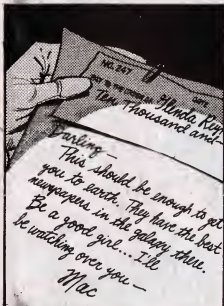 NO. 247
PAY TO THE ORDER OF
DATE
Glenda
Ten Thousand and
Darling—
This should be enough to get
you to earth. They have the best
newspapers in the galaxy there.
Be a good girl... I'll
be watching over you—
Mac